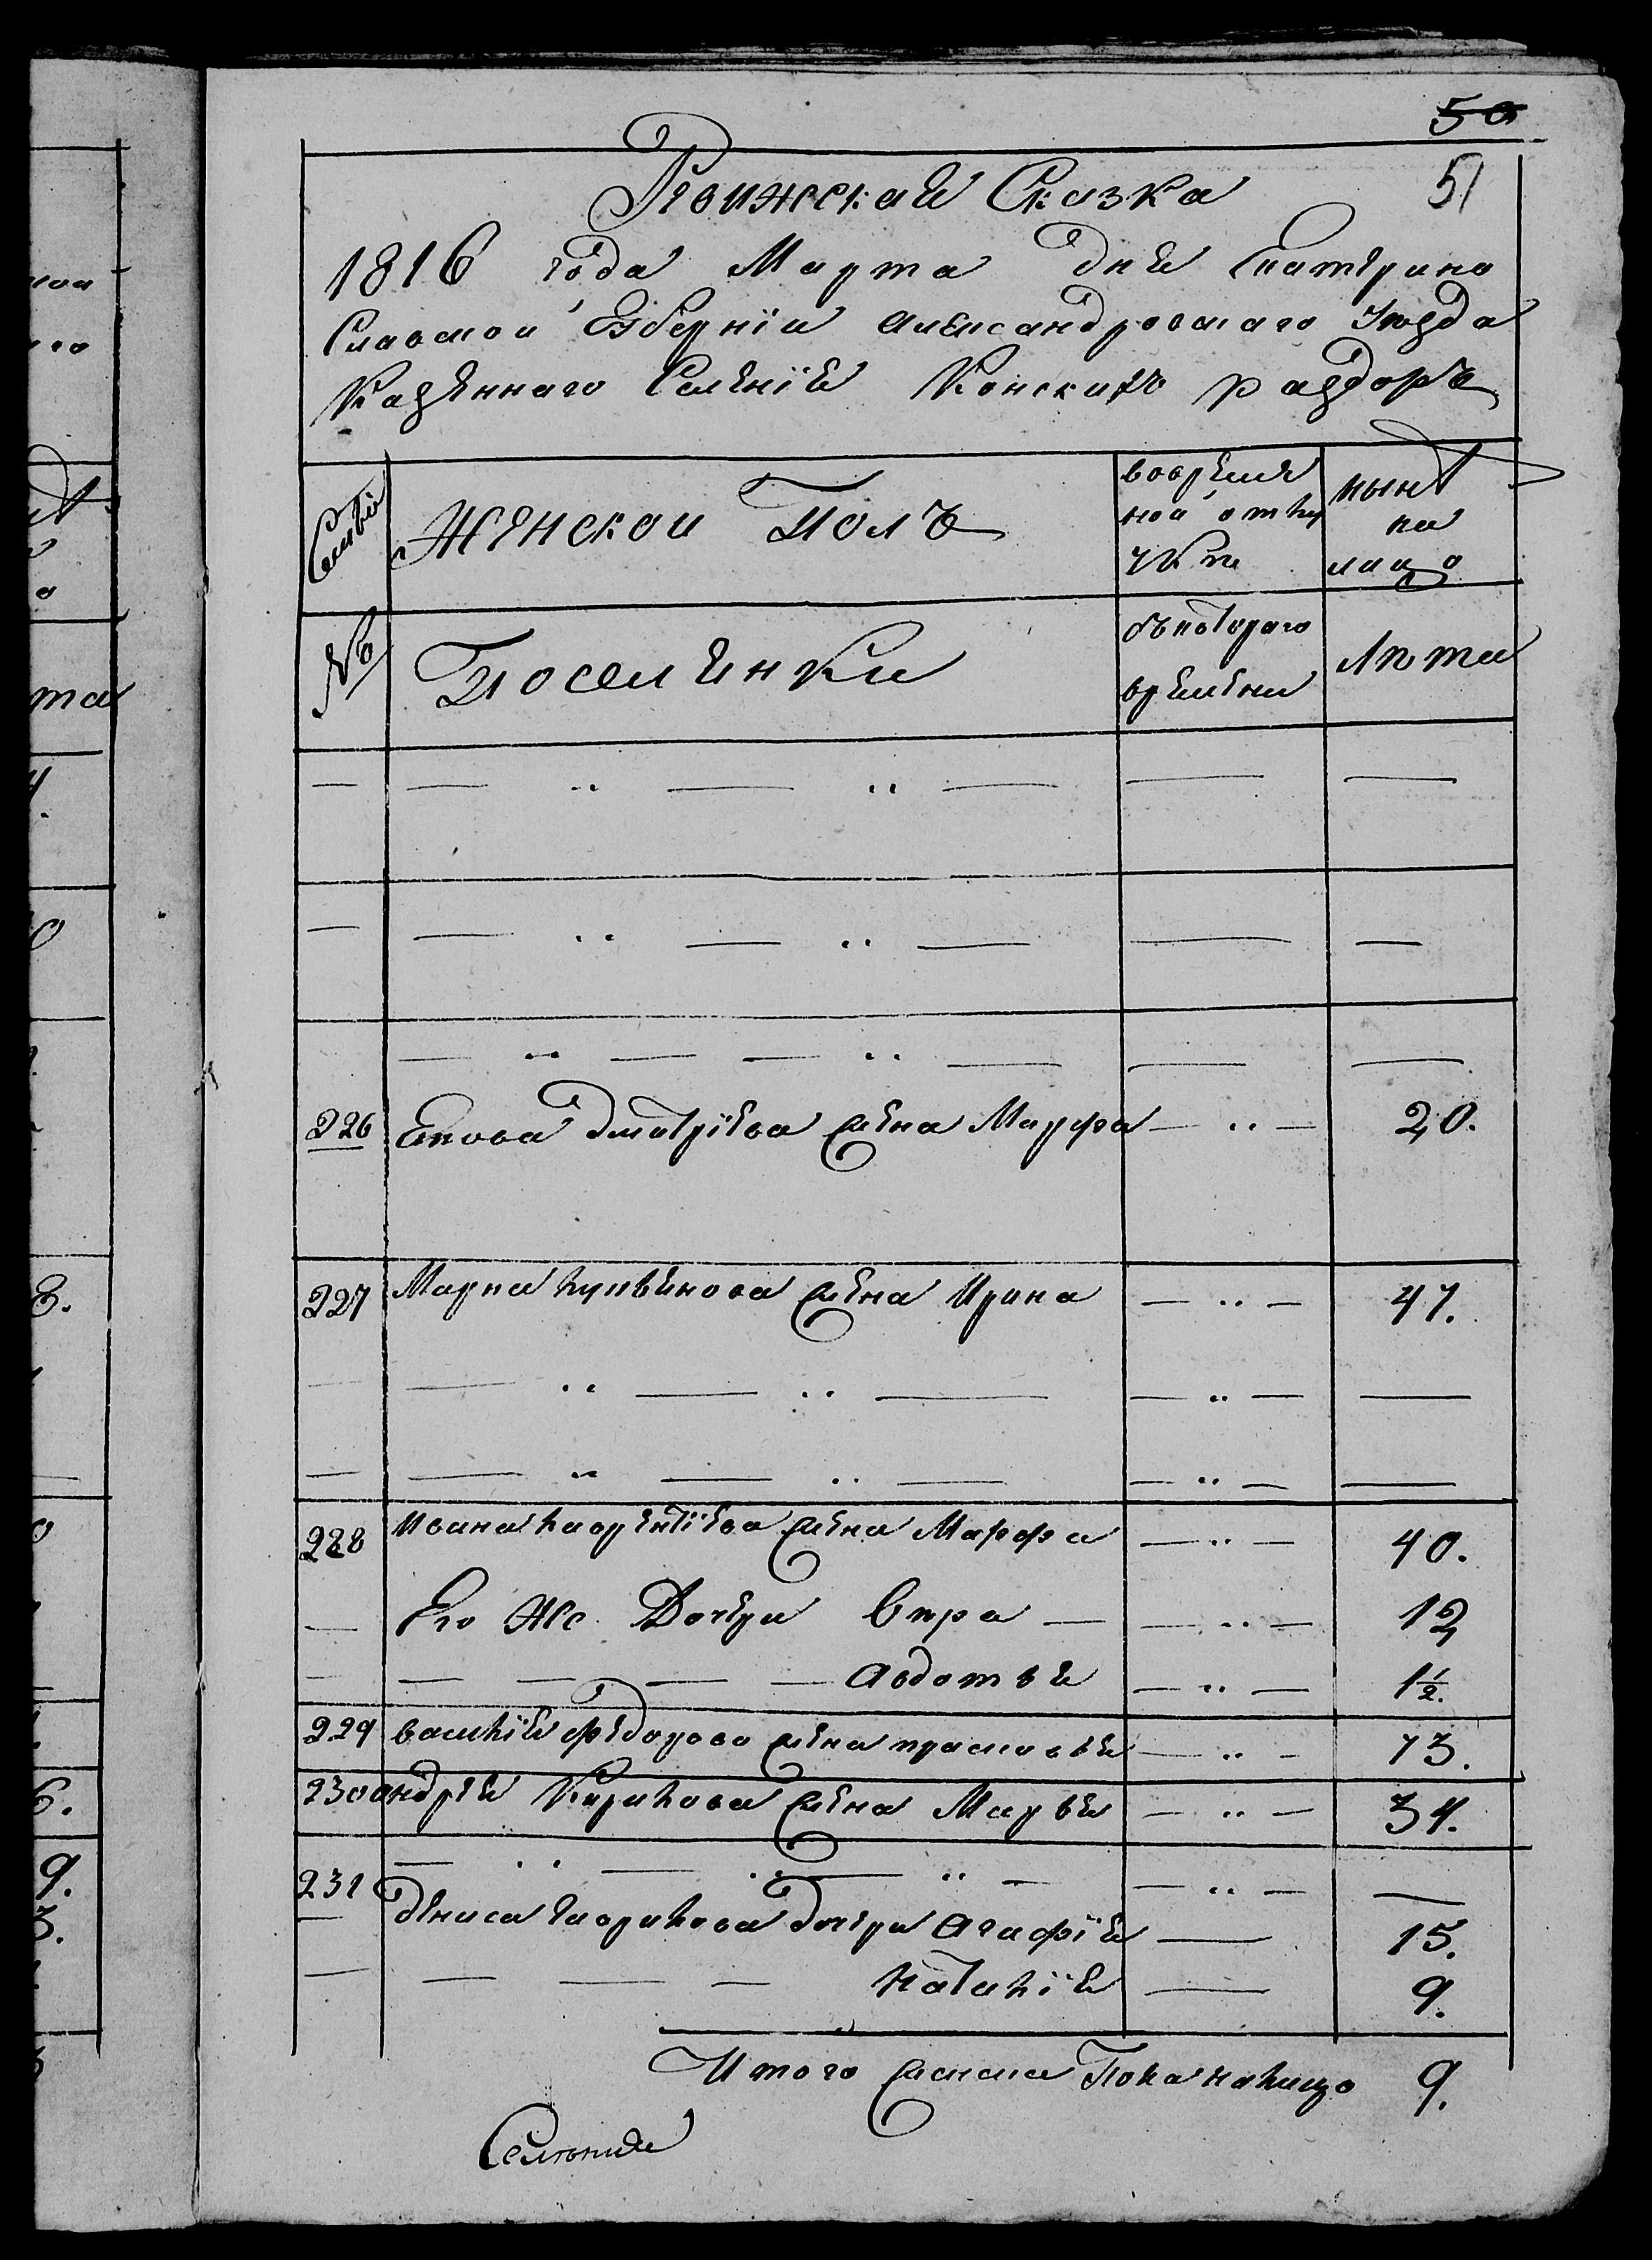 50
51
Ревижская Сказка
1816 года Марта дня Екатерино
Славской Губернїи Александровскаго Уезда
Казенного Селенїя Конскихъ раздоръ
Семьи
Женской Полъ
вовремен
ной отлу
чке
ныне
на
лицо
№
Поселянки
съкоторого
времени
Лета
226 Якова Дмитрїева жена Марфа — .. — 20.
227 Марка жена Ирина — .. — 47.
228 Ивана Лаврентїева жена Марфа — .. — 40.
Его Же Дочери Вера — — .. — 12
— — — — — Авдотья — .. — 1½.
229 василїя Федорова жена прасковья — .. — 73.
230 андрея Кирилова жена Марья — .. — 34.
231
Дениса Гаврилова дочери Агафїя — 15.
— — — — Наталїя — 9.
Итого женска Пола налицо 9.